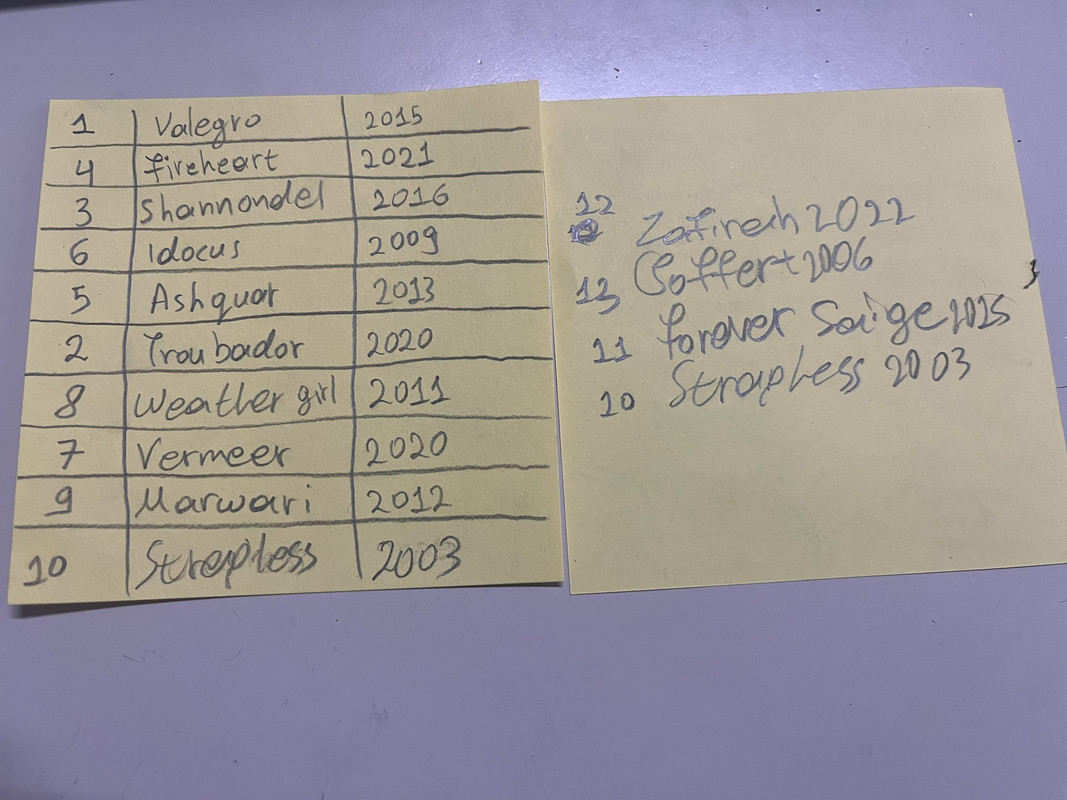 1 Valegro 2015
4 fireheart 2021
3 Shannondel 2016
6 Idocus 2009
5 Ashquar 2013
2 Troubador 2020
8 Weather girl 2011
7 Vermeer 2020
9 Marwari 2012
10 Strapless 2003
12
Zafirah 2022
13 Goffert 2006
11 forever Saige 2025
10 Strapless 2003